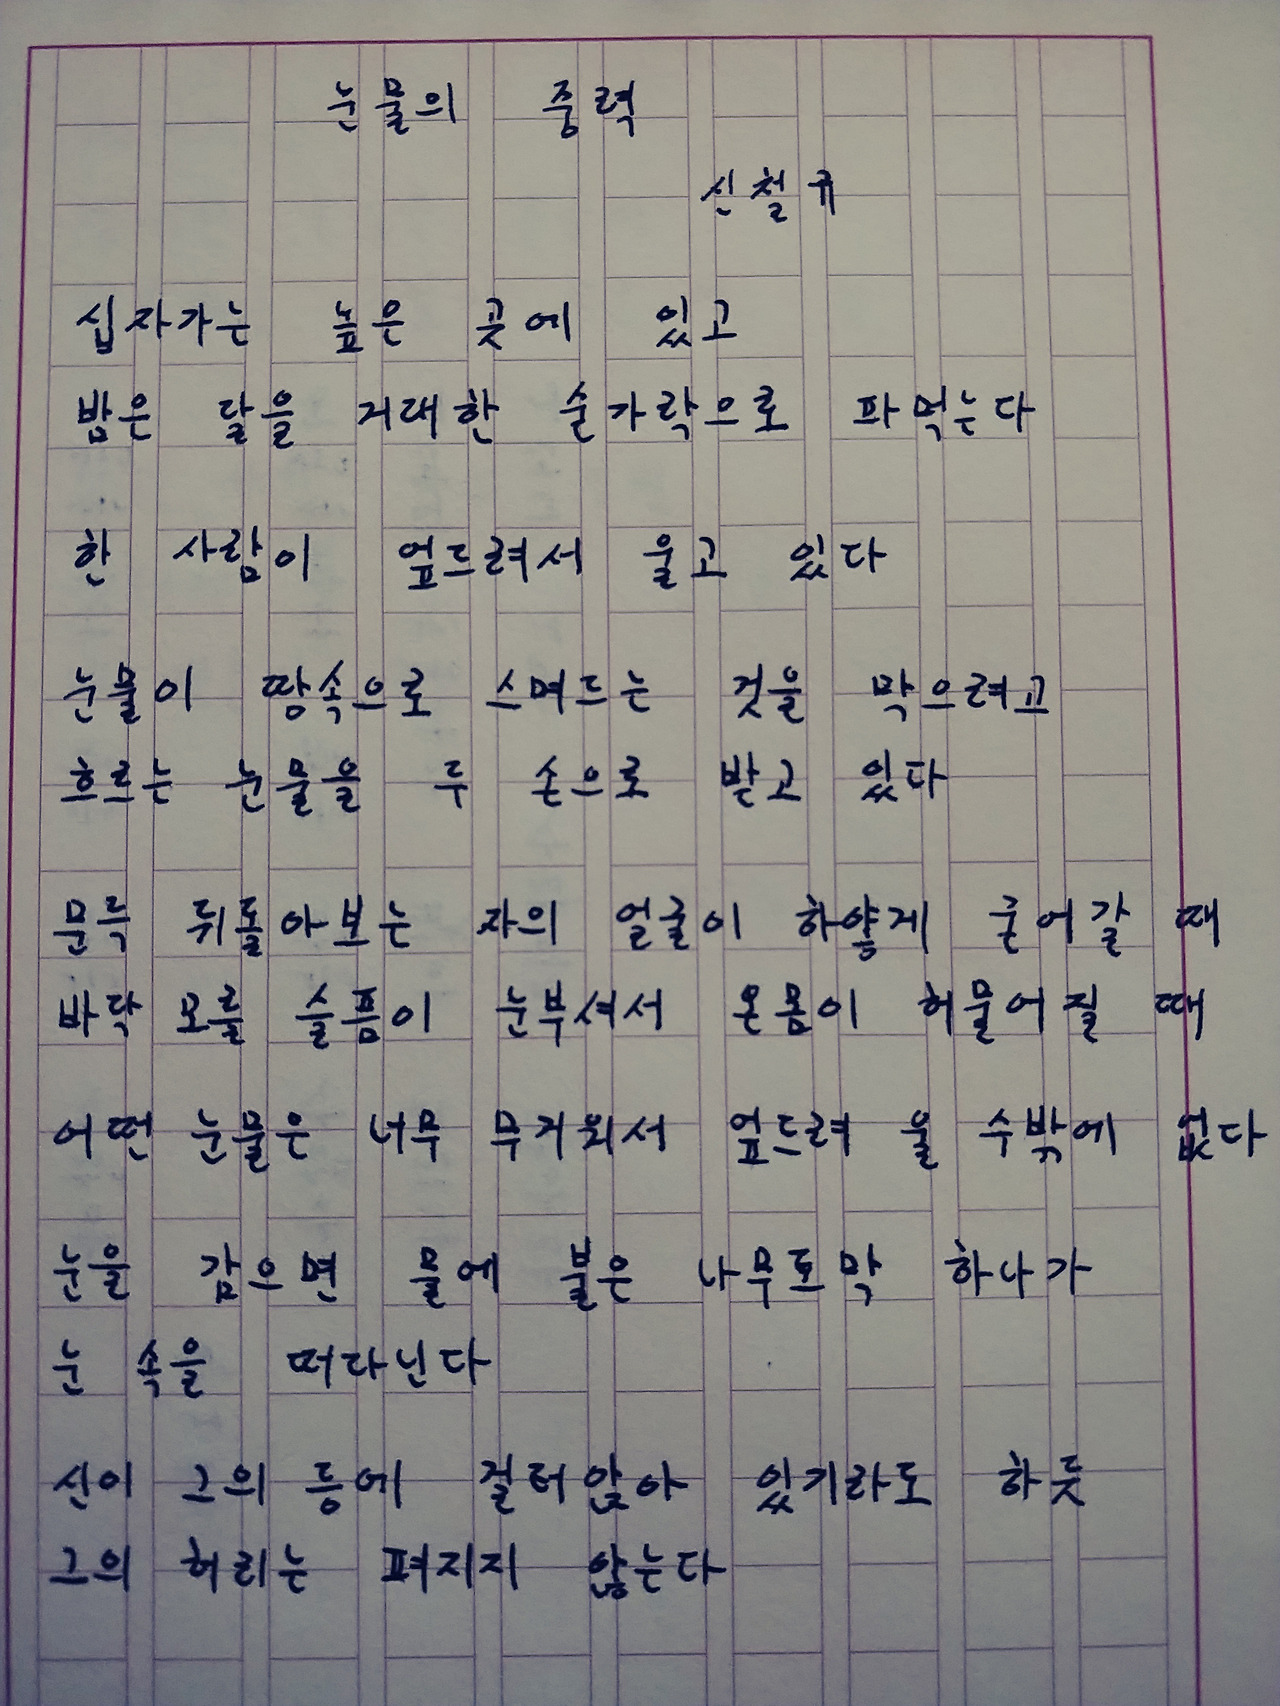 눈물의 중력
신철규
십자가는 높은 곳에 있고
밤은 달을 거대한 숟가락으로 파먹는다
한 사람이 엎드려서 울고 있다
눈물이 땅속으로 스며드는 것을 막으려고
흐르는 눈물을 두 손으로 받고 있다
문득 뒤돌아보는 자의 얼굴이 하얗게 굳어갈 때
바닥 모를 슬픔이 눈부셔서 온몸이 허물어질 때
어떤 눈물은 너무 무거워서 엎드려 울 수밖에 없다
눈을 감으면 물에 불은 나무토막 하나가
눈 속을 떠다닌다
신이 그의 등에 걸터앉아 있기라도 하듯
그의 허리는 펴지지 않는다